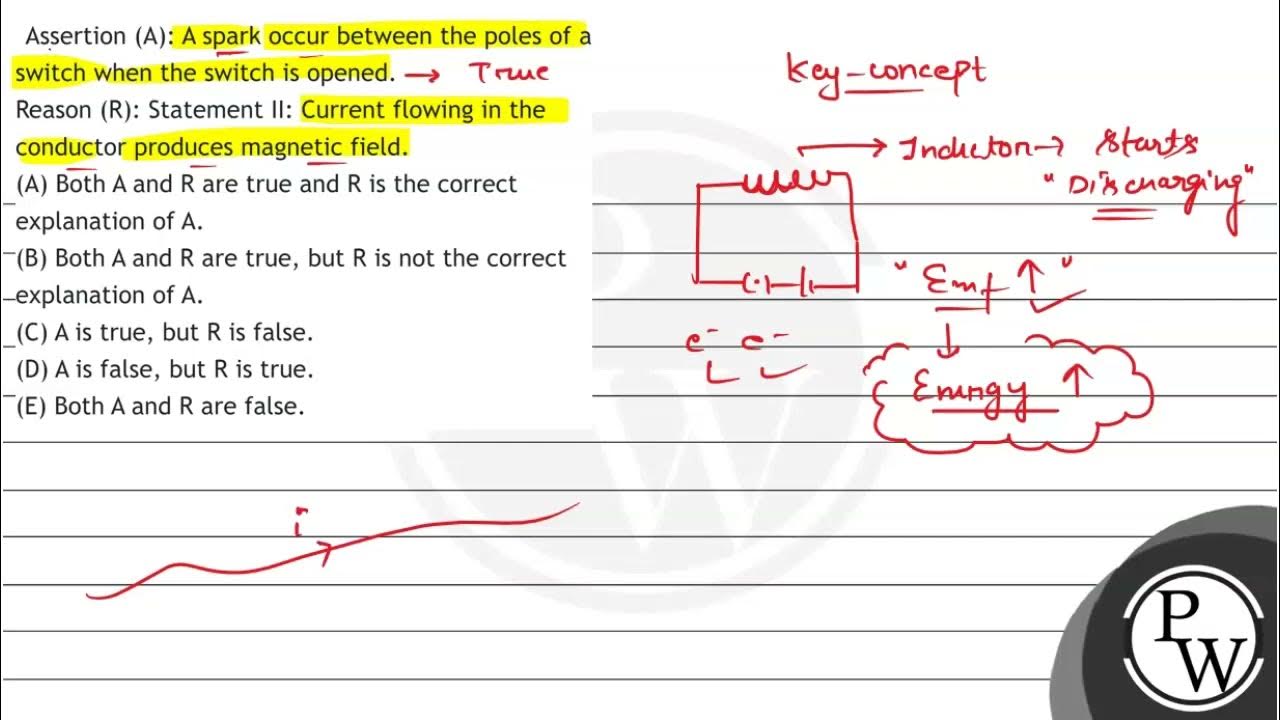 Assertion (A): A spark occur between the poles of a
switch when the switch is opened. → True
Reason (R): Statement II: Current flowing in the
conductor produces magnetic field.
(A) Both A and R are true and R is the correct
explanation of A.
(B) Both A and R are true, but R is not the correct
explanation of A.
(C) A is true, but R is false.
(D) A is false, but R is true.
(E) Both A and R are false.
Key-concept
→ Inductor → Starts
"Discharging"
" Emf ↑ "
e⁻ e⁻
↓
Energy ↑
i
PW
PW